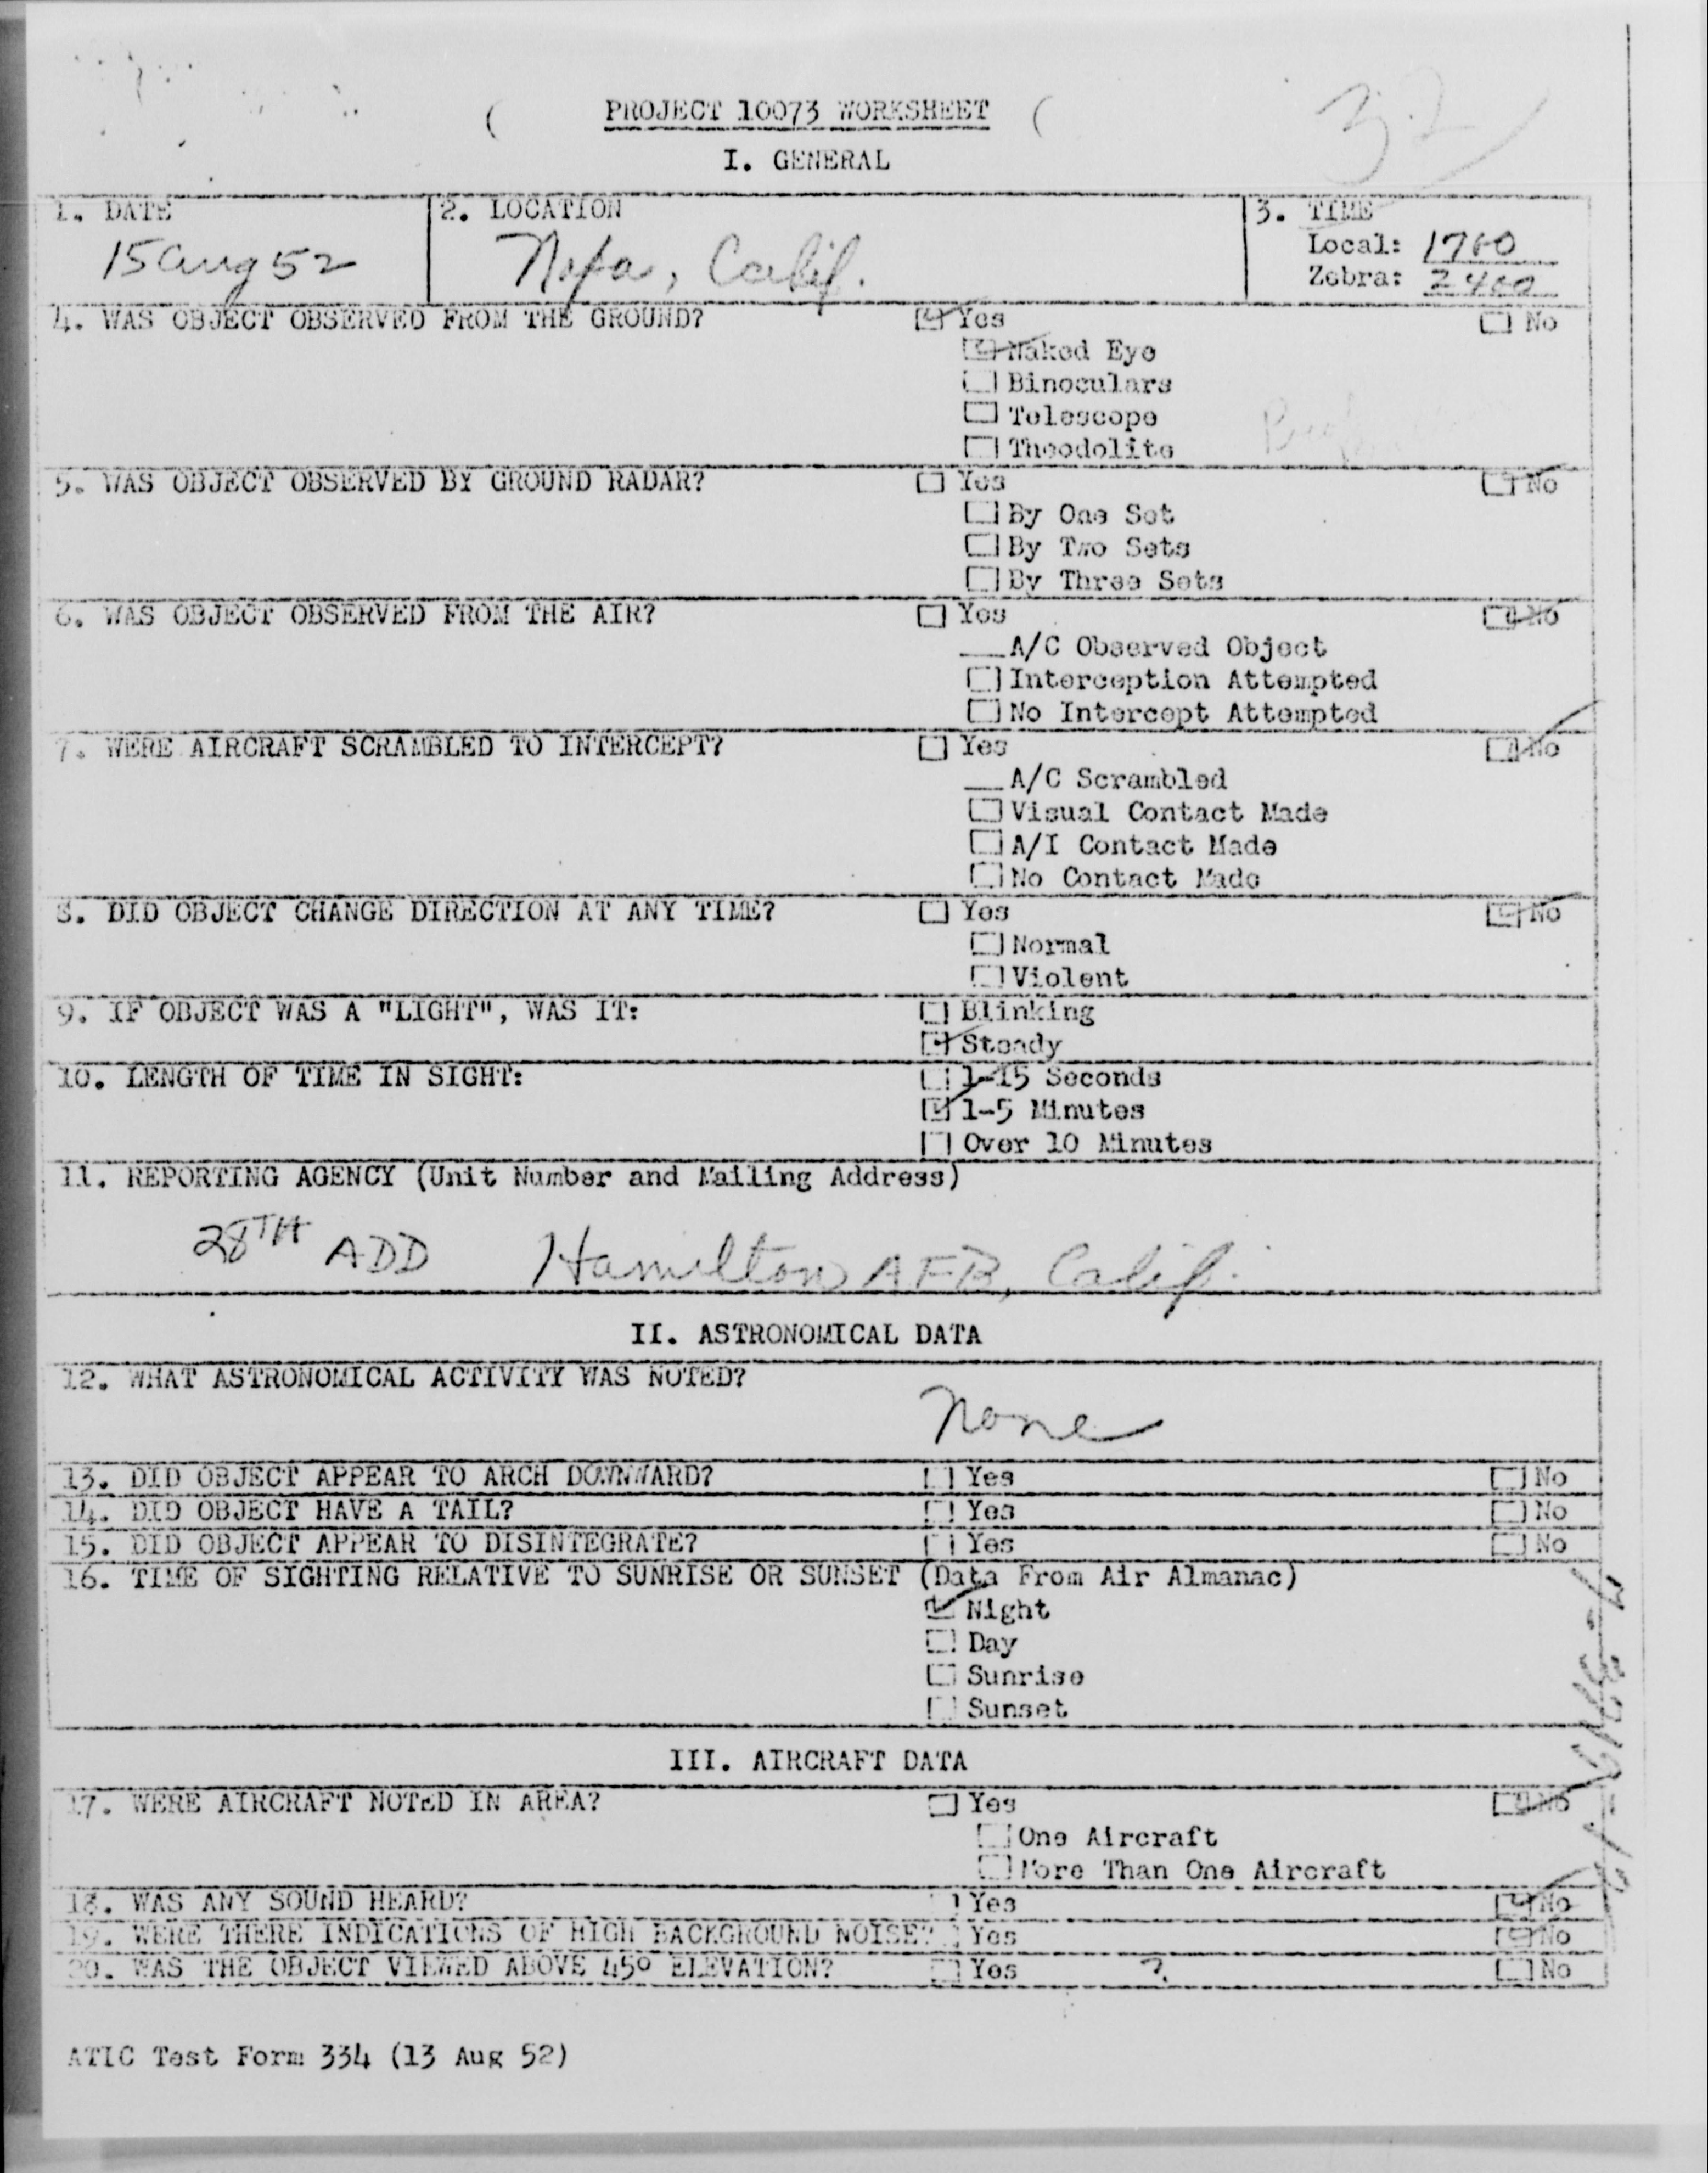 PROJECT 10073 WORKSHEET
32
I. GENERAL
1. DATE
15 Aug 52
2. LOCATION
Napa, Calif.
3. TIME
Local: 1700
Zebra: 2400
4. WAS OBJECT OBSERVED FROM THE GROUND? Yes No
Naked Eye
Binoculars
Telescope
Theodolite
5. WAS OBJECT OBSERVED BY GROUND RADAR? Yes No
By One Set
By Two Sets
By Three Sets
6. WAS OBJECT OBSERVED FROM THE AIR? Yes No
A/C Observed Object
Interception Attempted
No Intercept Attempted
7. WERE AIRCRAFT SCRAMBLED TO INTERCEPT? Yes No
A/C Scrambled
Visual Contact Made
A/I Contact Made
No Contact Made
8. DID OBJECT CHANGE DIRECTION AT ANY TIME? Yes No
Normal
Violent
9. IF OBJECT WAS A "LIGHT", WAS IT: Blinking
Steady
10. LENGTH OF TIME IN SIGHT: 1-15 Seconds
1-5 Minutes
Over 10 Minutes
11. REPORTING AGENCY (Unit Number and Mailing Address)
28TH ADD Hamilton AFB, Calif.
II. ASTRONOMICAL DATA
12. WHAT ASTRONOMICAL ACTIVITY WAS NOTED?
None
13. DID OBJECT APPEAR TO ARCH DOWNWARD? Yes No
14. DID OBJECT HAVE A TAIL? Yes No
15. DID OBJECT APPEAR TO DISINTEGRATE? Yes No
16. TIME OF SIGHTING RELATIVE TO SUNRISE OR SUNSET (Data From Air Almanac)
Night
Day
Sunrise
Sunset
III. AIRCRAFT DATA
17. WERE AIRCRAFT NOTED IN AREA? Yes No
One Aircraft
More Than One Aircraft
18. WAS ANY SOUND HEARD? Yes No
19. WERE THERE INDICATIONS OF HIGH BACKGROUND NOISE? Yes No
20. WAS THE OBJECT VIEWED ABOVE 45° ELEVATION? Yes ? No
ATIC Test Form 334 (13 Aug 52)